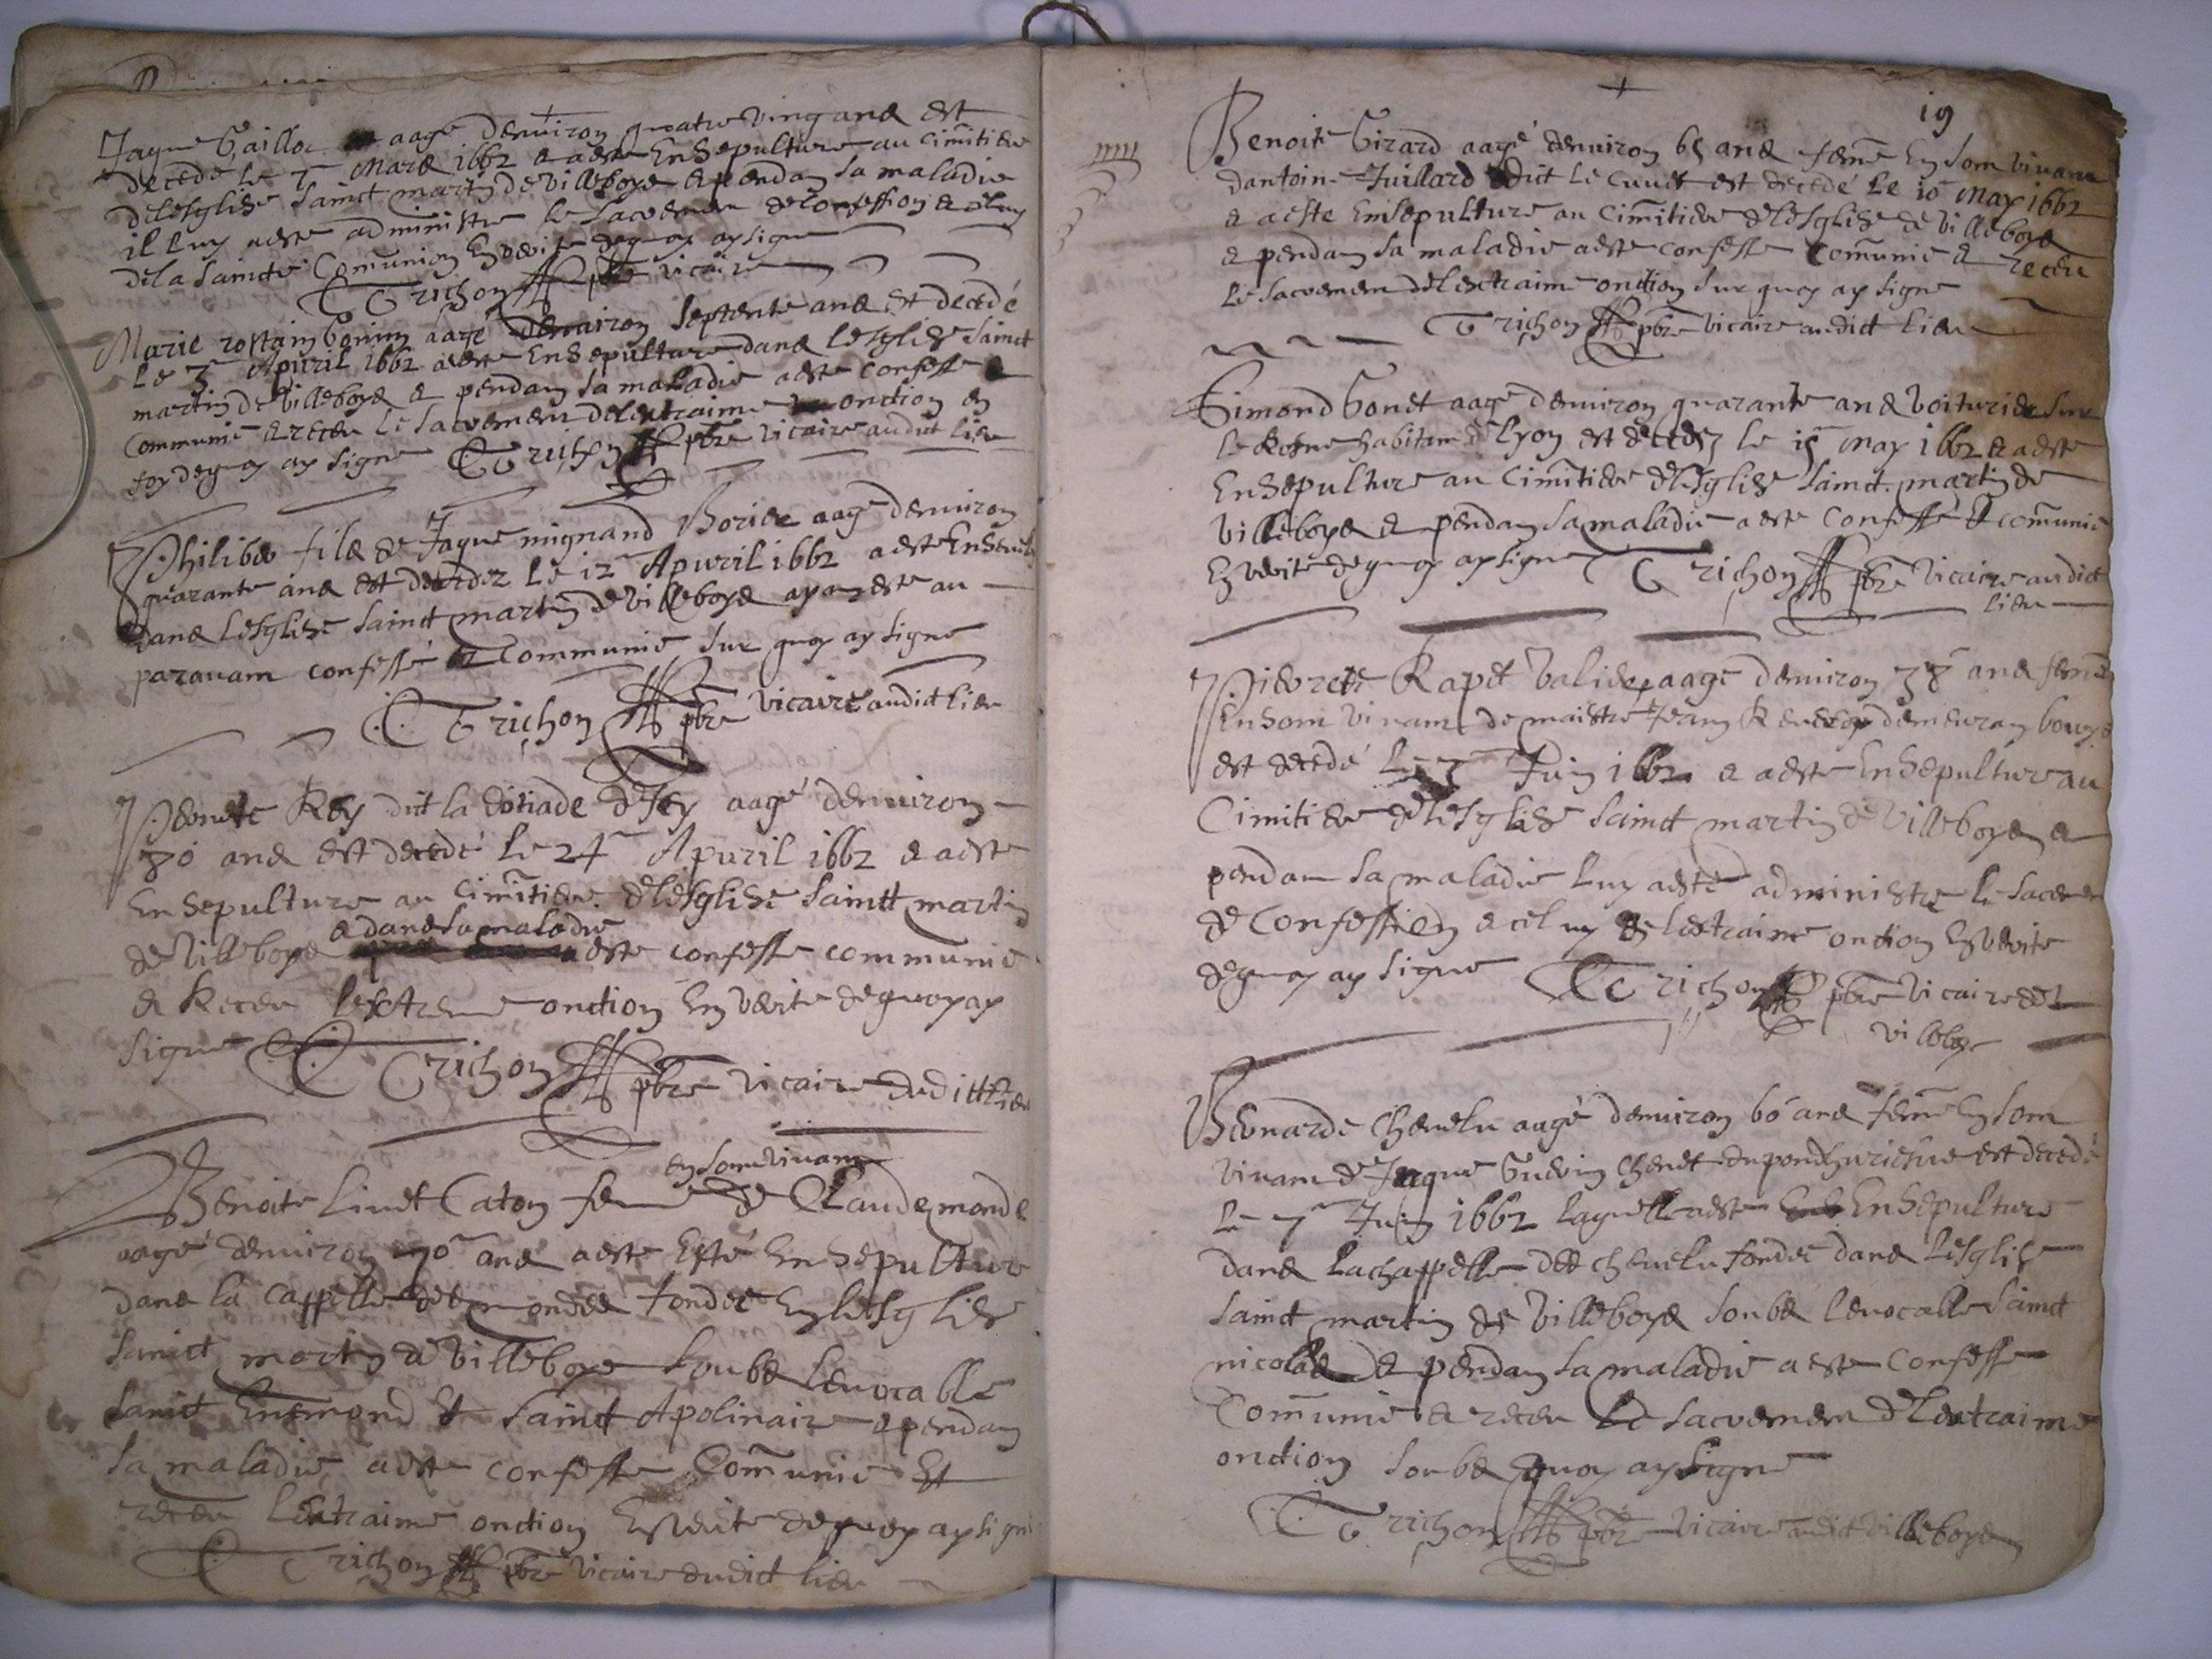 Jaque aagé denviron quatre ving ans est
decedé le Mars 1662 & a este Ensepulture au cimitiere
de lesglise sainct martin de villeboys & pendan sa maladie
il luy a este administre le sacremen de confession & celuy
de la saincte Comunion En verite dequoy ay signe
Trichon pbre vicaire
Marie rostain bonin aagé denviron septente ans est decedé
le 3 Apvril 1662 a este Ensepulture dans lesglise sainct
martin de villeboys & pendan sa maladie a este confesse &
communié & receu le sacremen de lextraime onction en
foy dequoy ay signe Trichon pbre vicaire audict lieu
Philiber fils de Jaque mignand Borier aagé denviron
quarante ans est decedez le 12 Apvril 1662 a este Enseveli
dans lesglise sainct martin de villeboys ayan este au
paravam confessé & Communié sur quoy ay signe
Trichon pbre vicaire audict lieu
Pernete Rey dict la aagé denviron
80 ans est decedé le 24 Apvril 1662 & a este
Ensepulture au cimitiere de lesglise sainct martin
& dans sa maladie
de villeboys este confesse communié
& Receu lextreme onction En verite dequoy ay
signe Trichon pbre vicaire dudict lieu
en som vivam
Benoite Livet Caton feme de Claude monde
aagé denviron 70 ans a este Esté Ensepulture
dans la cappelle des mondes fondée En lesglise
sainct martin de villeboys soubs levocable
sainct Ennemond Et sainct Apolinaire & pendan
sa maladie a este confesse Comunié Et
receu lextraime onction En verite dequoy ay signe
Trichon pbre vicaire dudict lieu
19
Benoite Girard aagé denviron 65 ans feme En som vivam
dantoine Juillard dict le est decedé le 10 May 1662
& a este Ensepulture au Cimitiere de lesglise de villeboys
& pendan sa maladie a este confesse Comunié & receu
le sacremen de lextraime onction sur quoy ay signe
Trichon pbre vicaire audict lieu
Simond Gonet aagé denviron quarante ans voiturier sur
le Rosne habitam de lyon est decedez le 15 May 1662 & a este
Ensepulture au Cimitiere de lesglise sainct martin de
villeboys & pendan sa maladie a este confessé & comunié
En verite dequoy ay signe Trichon pbre vicaire audict
lieu
Pierrete Rapet aagé denviron 38 ans feme
En som vivam de maistre Jean demeuran
est decedé le Juin 1662 & a este Ensepulture au
Cimitiere de lesglise sainct martin de villeboys &
pendan sa maladie luy a este administre le sacremen
de Confession & celuy de lextraime onction En verite
dequoy ay signe Trichon pbre vicaire de
villeboys
Bernarde Chevelu aagé denviron 60 ans feme En som
vivam de Jaque Guerin est decedé
le 7 Juin 1662 laquelle a este Ensepulture
dans la chappelle des chevelu fondee dans lesglise
sainct martin de villeboys soubs levocable sainct
nicolas & pendan sa maladie a este Confesse
Comunié & receu le sacremen de lextraime
onction soubs quoy ay signe
Trichon pbre vicaire audict villeboys